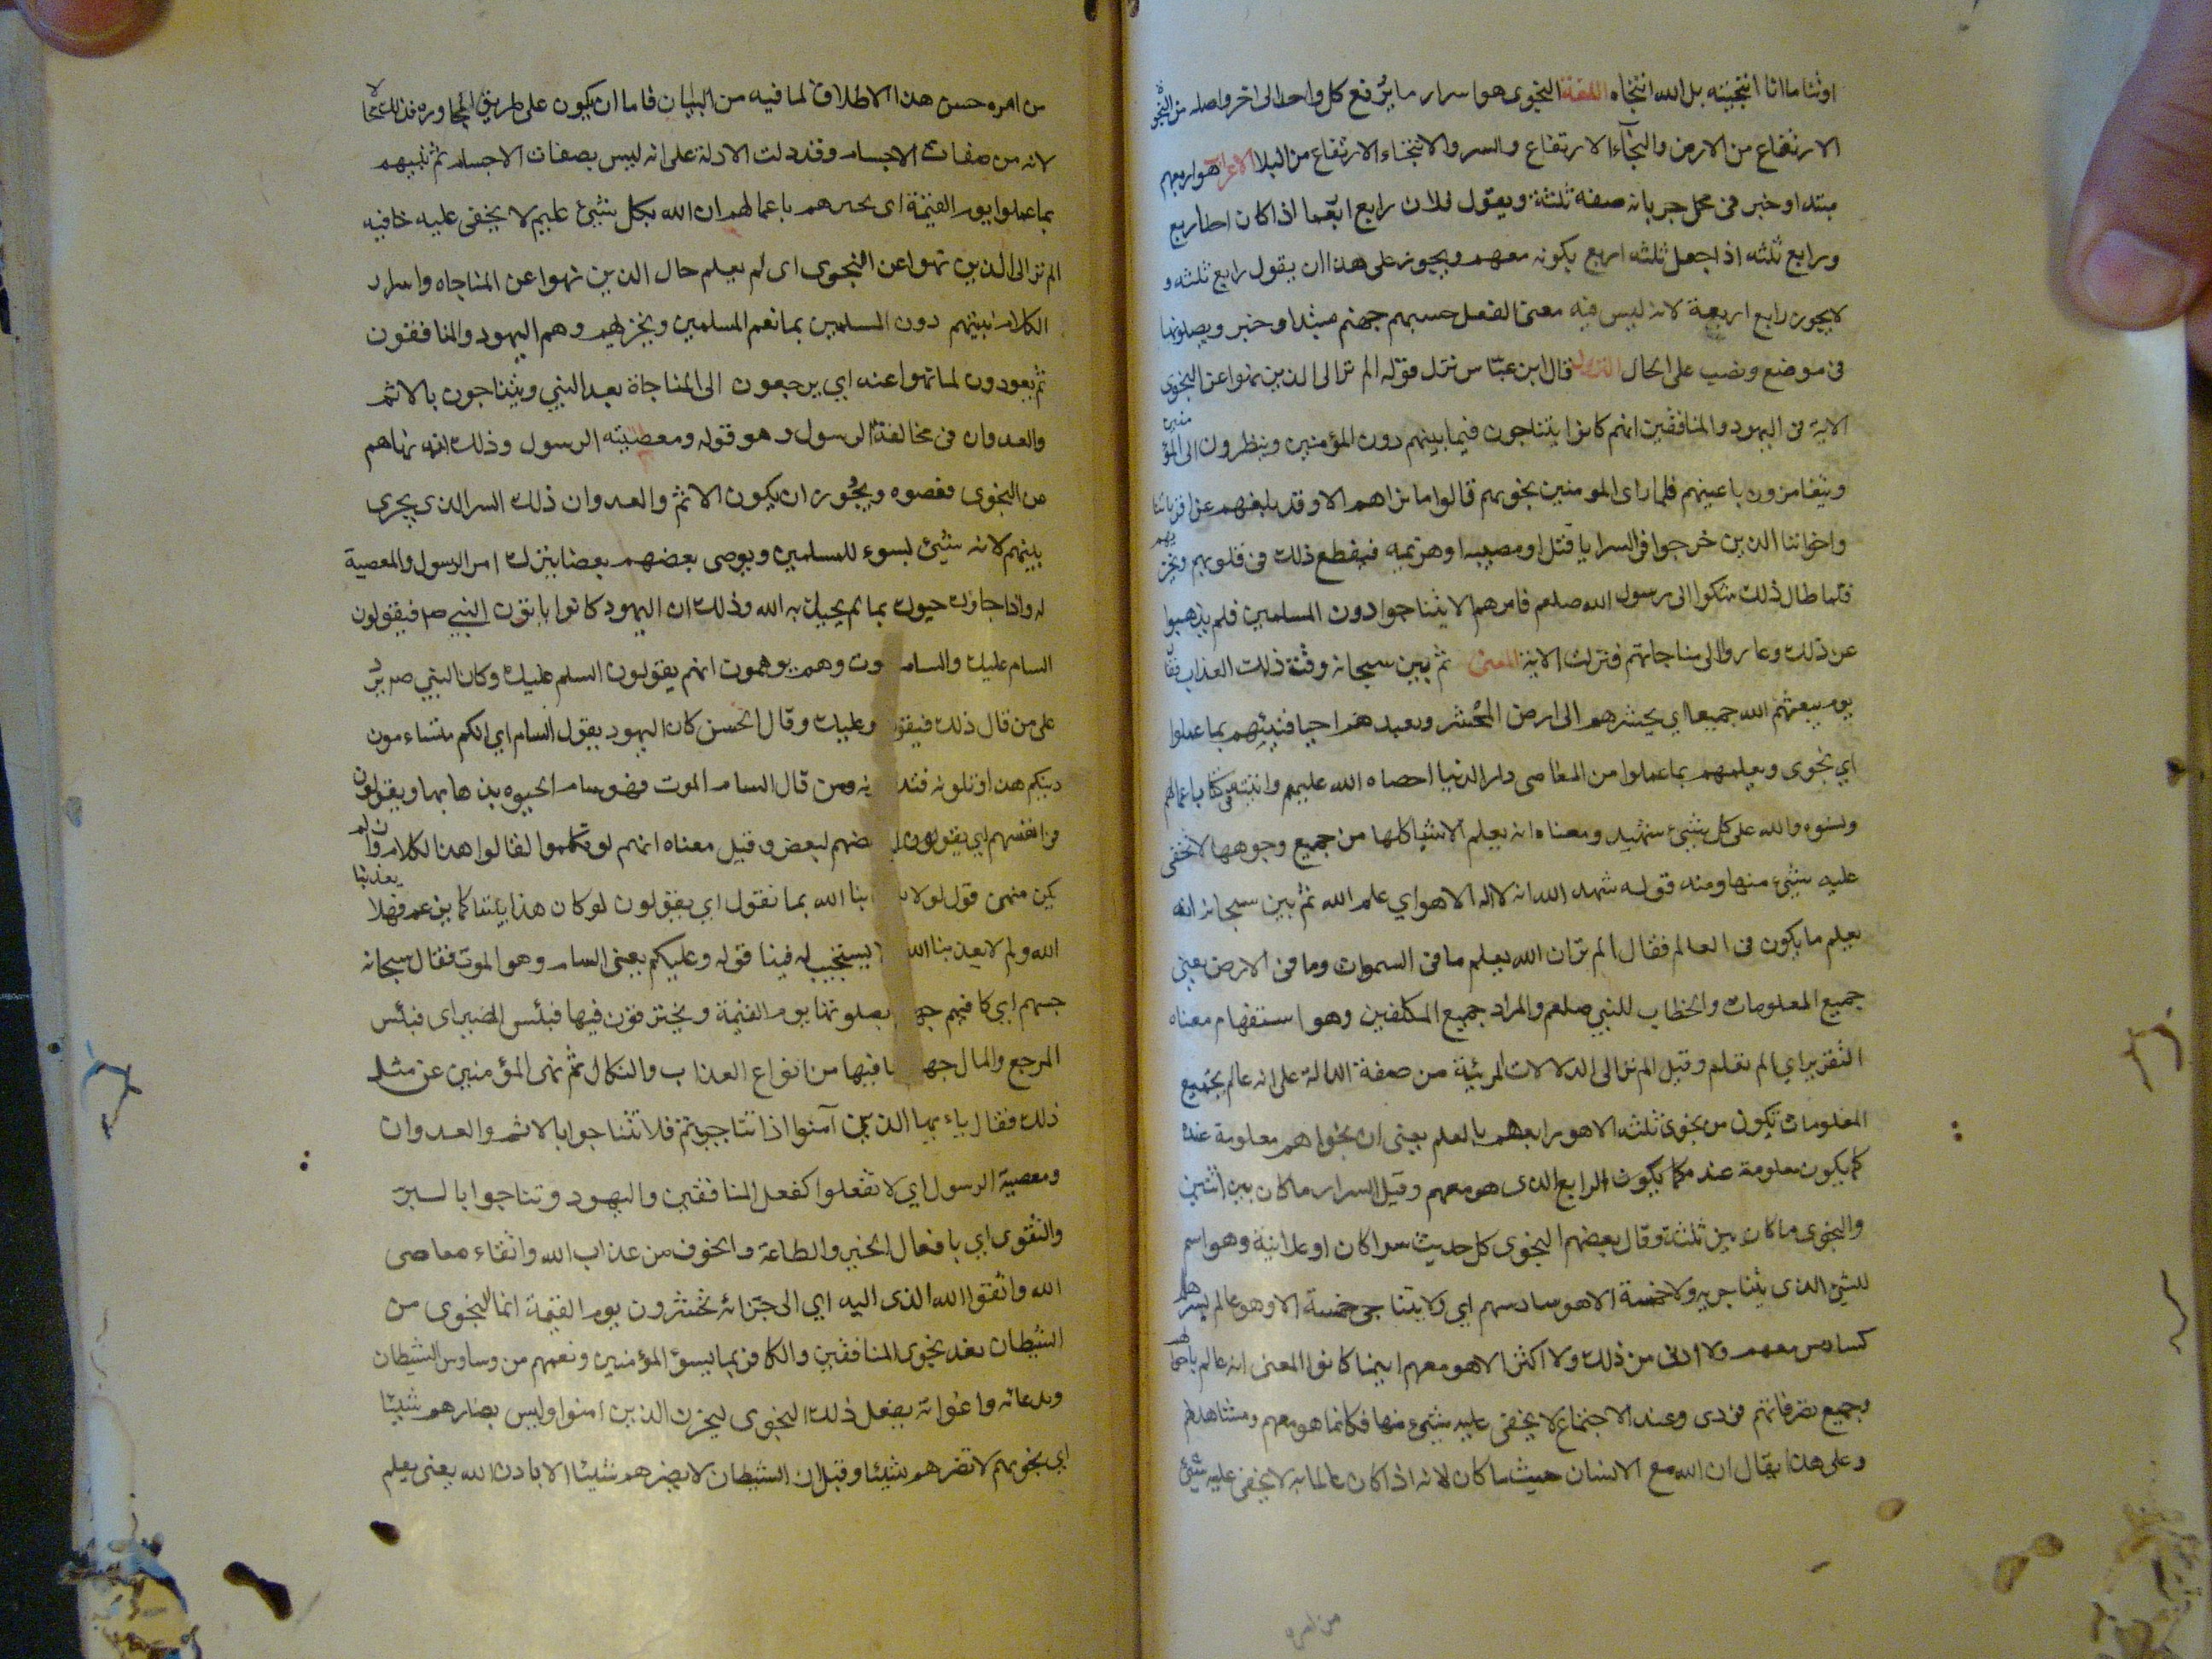 او نثا ما اثا انتجيته بل الله انتجاه اللغة النجوى هو اسرار ما يرفع كل واحد الى اخر واصله من النجوة
الارتفاع من الارض والنجآء الارتفاع والسر والانتجاء الارتفاع من البلا الاعراب هو رابعهم
مبتدا وخبر في محل جر بانه صفه ثلثة ويقول فلان رابع اربعة اذا كان احد اربع
ورابع ثلثه اذا جعل ثلثه اربع بكونه معهم ويجوز على هذا ان يقول رابع ثلثه و
لا يجوز رابع اربعة لانه ليس فيه معنى الفعل حسبهم جهنم مبتدا وخبر ويصلونها
في موضع ونصب على الحال النزول قال ابن عباس نزل قوله الم تر الى الذين نهوا عن النجوى
الاية في اليهود والمنافقين انهم كانوا يتناجون فيما بينهم دون المؤمنين وينظرون الى المؤمنين
ويتغامزون باعينهم فلما راى المومنين نجويهم قالوا ما نراهم الا وقد بلغهم عن اقربائنا
واخواننا الذين خرجوا في السرايا قتل او مصيبه او هزيمه فيقطع ذلك في قلوبهم ويحزنهم
فلما طال ذلك شكوا الى رسول الله صلعم فامرهم الا يتناجوا دون المسلمين فلم يذهبوا
عن ذلك وعادوا الى مناجاتهم فنزلت الاية المعنى ثم بين سبحانه وقت ذلك العذاب فقال
يوم يبعثهم الله جميعا اي يحشرهم الى ارض المحشر ويعيدهم احيا فينبئهم بما عملوا
اي نجوى ويعلمهم بما عملوا من المعاصى دار الدنيا احصاه الله عليهم واثبته في كتاب اعمالهم
ونسوه والله على كل شيئ شهيد ومعناه انه يعلم الاشيا كلها من جميع وجوهها لا تخفى
عليه شيئ منها ومنه قوله شهد الله انه لا اله الا هو اي علم الله ثم بين سبحانه انه
يعلم ما يكون في العالم فقال الم تر ان الله يعلم ما في السموات وما في الارض يعنى
جميع المعلومات والخطاب للنبي صلعم والمراد جميع المكلفين وهو استفهام معناه
التقرير اي الم تعلم وقيل الم تر الى الدلالات المرئية من صفة الدالة على انه عالم بجميع
المعلومات يكون من نجوى ثلثه الا هو رابعهم بالعلم يعنى ان نجواهم معلومة عنده
كما يكون معلومة عند مكما يكون الرابع الذى هو معهم وقيل السرار ما كان بين اثنين
والنجوى ما كان بين ثلثة وقال بعضهم النجوى كل حديث سرا كان او علانية وهو اسم
للشيئ الذى يتناجى به ولا خمسة الا هو سادسهم اي ولا يتناجى خمسة الا وهو عالم بسرهم
كسادس معهم ولا ادنى من ذلك ولا اكثر الا هو معهم اينما كانوا المعنى انه عالم باحوالهم
وجميع تصرفاتهم فردى وعند الاجتماع لا يخفى عليه شيئ منها فكانما هو معهم ومشاهدهم
وعلى هذا يقال ان الله مع الانسان حيث ما كان لانه اذا كان عالما به لا يخفى عليه شيئ
من امره
من امره حسن هذا الاطلاق لما فيه من البيان فاما ان يكون على طريق المجاورة فذلك محال
لانه من صفات الاجسام وقد دلت الادلة على انه ليس بصفات الاجسام ثم ينبيهم
بما عملوا يوم القيمة اى يخبرهم باعمالهم ان الله بكل شيئ عليم لا يخفى عليه خافيه
الم تر الى الذين نهوا عن النجوى اى لم يعلم حال الذين نهوا عن المناجاه واسرار
الكلام بينهم دون المسلمين بما نغم المسلمين ويحزنهم وهم اليهود والمنافقون
ثم يعودون لما نهوا عنه اي يرجعون الى المناجاة بعد النهي ويتناجون بالاثم
والعدوان في مخالفة الرسول وهو قوله ومعصيته الرسول وذلك انه نهاهم
عن النجوى فعصوه ويجوز ان يكون الاثم والعدوان ذلك السر الذى يجرى
بينهم لانه شيئ يسوء للمسلمين ويوصى بعضهم بعضا بترك امر الرسول والمعصية
له واذا جاؤك حيوك بما لم يحيك به الله وذلك ان اليهود كانوا ياتون النبي صم فيقولون
السام عليك والسام وت وهم يوهمون انهم يقولون السلم عليك وكان النبي صم يرد
على من قال ذلك فيقو وعليك وقال الحسن كان اليهود يقول السام اي انكم ستساءمون
دينكم هذا وتملونه فتد نه ومن قال السام الموت فهو سام الحيوه بذهابها ويقولون
في انفسهم اي يقولون ضهم لبعض وقيل معناه انهم لو تكلموا لقالوا هذا الكلام وان لم
يكن منهم قول لولا بنا الله بما نقول اي يقولون لو كان هذا نبيا كما يزعم فهلا يعذبنا
الله ولم لا يعذبنا الله يستجيب له فينا قوله وعليكم يعنى السام وهو الموت فقال سبحانه
حسبهم اي كافيهم جه يصلونها يوم القيمة ويحترقون فيها فبئس المصير اى فبئس
المرجع والمال جه ما فيها من انواع العذاب والنكال ثم نهى المؤمنين عن مثل
ذلك فقال ياءيها الذين آمنوا اذا تناجيتم فلا تتناجوا بالاثم والعدوان
ومعصية الرسول اي لا تفعلوا كفعل المنافقين واليهود وتناجوا بالبر
والتقوى اي بافعال الخير والطاعة والخوف من عذاب الله واتقاء معاصى
الله واتقوا الله الذى اليه اي الى جزائه تحشرون يوم القيمة انما النجوى من
الشيطان يعنى نجوى المنافقين والكافرين بما يسوء المؤمنين ونعمهم من وساوس الشيطان
وبدعائه واغوائه يفعل ذلك النجوى ليحزن الذين امنوا وليس بضارهم شيئا
اي نجويهم لا تضرهم شيئا وقيل ان الشيطان لا يضرهم شيئا الا باذن الله يعنى يعلم